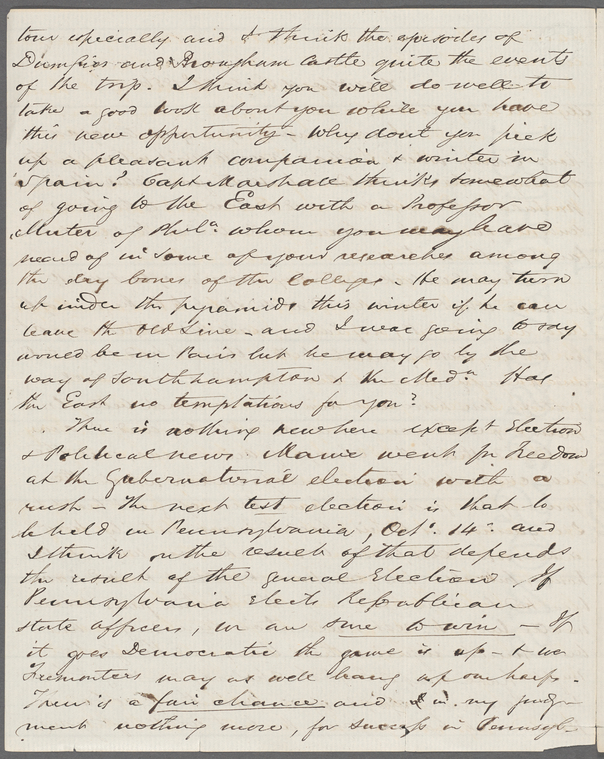 tour especially and I think the episodes of
Dumfries and Brougham Castle quite the events
of the trip. I think you will do well to
take a good look about you while you have
this new opportunity - Why dont you pick
up a pleasant companion & winter in
Spain? Capt Marshall thinks somewhat
of going to the East with a Professor
Mutter of Phila. whom you may have
heard of in some of your researches among
the dry bones of the Colleges. He may turn
up under the pyramids this winter if he can
leave the Old Line - and I was going to say
would be in Paris but he may go by the
way of Southhampton & the Medn. Has
the East no temptations for you?
There is nothing new here except Election
& Political news. Maine went for Freedom
at the Gubernatorial election with a
rush - The next test election is that to
be held in Pennsylvania, Oct. 14th and
I think on the result of that depends
the result of the general Election. If
Pennsylvania Elects Republican
state officers, we are sure to win - If
it goes Democratic the game is up - & we
Fremonters may as well hang up our harps.
There is a fair chance and in my judg-
ment nothing more, for success in Pennsyl-